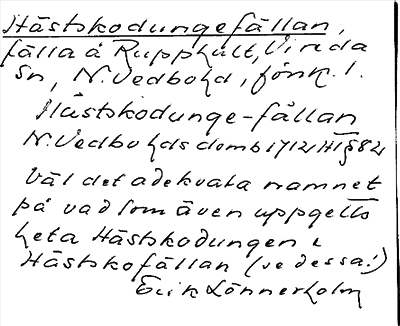 Hästskodungefällan,
fälla å Rupphult, Vireda
sn, N. Vedbo hd, Jönk. l.
Hästskodunge-fållan
N. Vedbo hds domb 1712 HT § 82
Väl det adekvata namnet
på vad som även uppgetts
heta Hästskodungen i
Hästskofällan (se dessa!)
Erik Lönnerholm